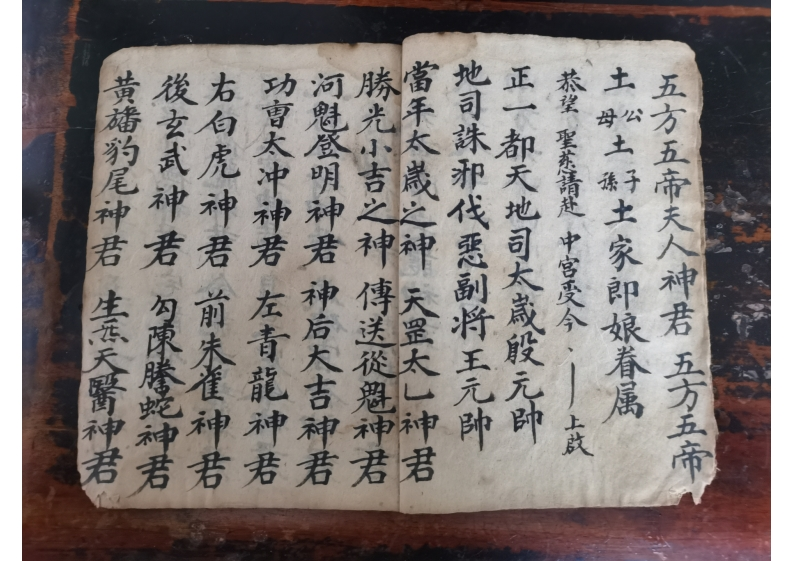 五方五帝夫人神君 五方五帝
土公母土子孫土家郎娘眷属
恭望 聖慈請赴 中宮受今、上啟
正一都天地司太歲殷元帥
地司誅邪伐惡副将王元帥
當年太歲之神 天罡太乚神君
勝光小吉之神 傳送從魁神君
河魁登明神君 神后大吉神君
功曹太冲神君 左青龍神君
右白虎神君 前朱雀神君
後玄武神君 勾陳騰蛇神君
黄旛豹尾神君 生炁天醫神君